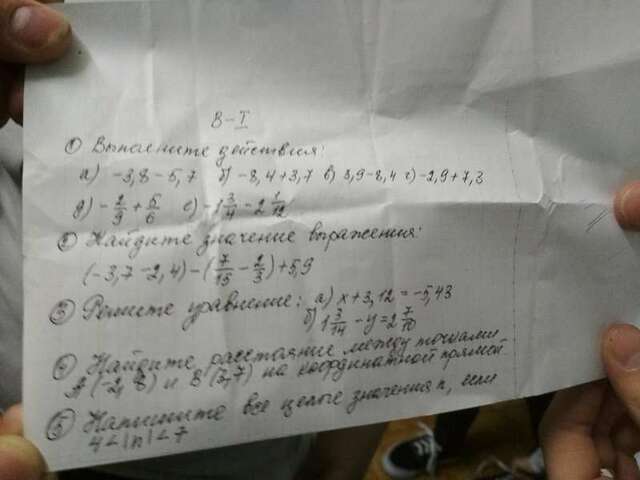 В-I
① Выполните действия:
а) -3,8-5,7 б) -8,4+3,7 в) 3,9-8,4 г) -2,9+7,3
д) -2/9+5/6 е) -1 3/4-2 1/12
② Найдите значение выражения:
(-3,7-2,4)-(7/15-2/3)+5,9
③ Решите уравнение: а) x+3,12=-5,43
б) 1 3/14-y=2 7/10
④ Найдите расстояние между точками
А(-2,8) и В(3,7) на координатной прямой.
⑤ Напишите все целые значения n, если
4<|n|<7